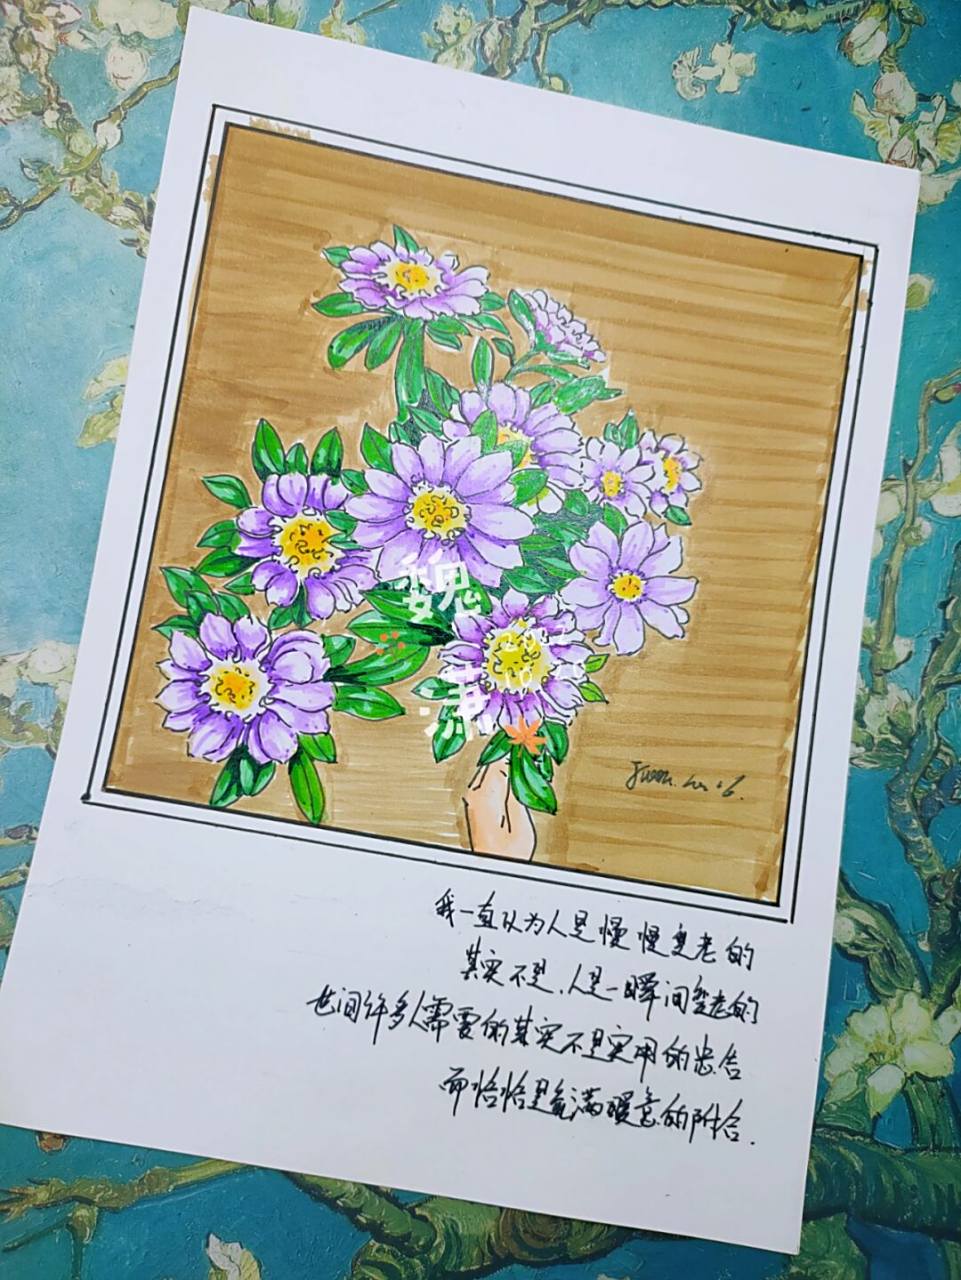 魏
潇
我一直认为人是慢慢变老的
其实不是，人是一瞬间变老的
世间许多人需要的其实不是实用的忠告
而恰恰是充满暖意的附合.